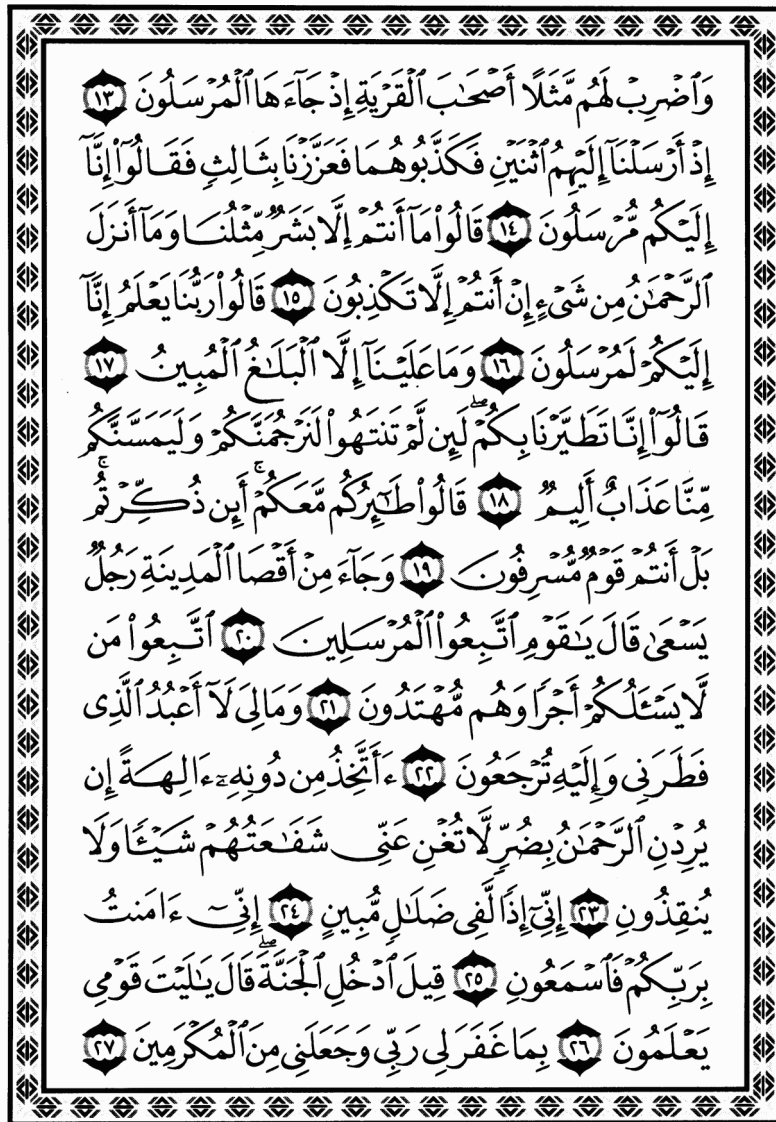 وَٱضۡرِبۡ لَهُم مَّثَلًا أَصۡحَٰبَ ٱلۡقَرۡيَةِ إِذۡ جَآءَهَا ٱلۡمُرۡسَلُونَ ١٣
إِذۡ أَرۡسَلۡنَآ إِلَيۡهِمُ ٱثۡنَيۡنِ فَكَذَّبُوهُمَا فَعَزَّزۡنَا بِثَالِثٖ فَقَالُوٓاْ إِنَّآ
إِلَيۡكُم مُّرۡسَلُونَ ١٤ قَالُواْ مَآ أَنتُمۡ إِلَّا بَشَرٞ مِّثۡلُنَا وَمَآ أَنزَلَ
ٱلرَّحۡمَٰنُ مِن شَيۡءٍ إِنۡ أَنتُمۡ إِلَّا تَكۡذِبُونَ ١٥ قَالُواْ رَبُّنَا يَعۡلَمُ إِنَّآ
إِلَيۡكُمۡ لَمُرۡسَلُونَ ١٦ وَمَا عَلَيۡنَآ إِلَّا ٱلۡبَلَٰغُ ٱلۡمُبِينُ ١٧
قَالُوٓاْ إِنَّا تَطَيَّرۡنَا بِكُمۡۖ لَئِن لَّمۡ تَنتَهُواْ لَنَرۡجُمَنَّكُمۡ وَلَيَمَسَّنَّكُم
مِّنَّا عَذَابٌ أَلِيمٞ ١٨ قَالُواْ طَٰٓئِرُكُم مَّعَكُمۡۚ أَئِن ذُكِّرۡتُمۚ
بَلۡ أَنتُمۡ قَوۡمٞ مُّسۡرِفُونَ ١٩ وَجَآءَ مِنۡ أَقۡصَا ٱلۡمَدِينَةِ رَجُلٞ
يَسۡعَىٰ قَالَ يَٰقَوۡمِ ٱتَّبِعُواْ ٱلۡمُرۡسَلِينَ ٢٠ ٱتَّبِعُواْ مَن
لَّا يَسۡـَٔلُكُمۡ أَجۡرٗا وَهُم مُّهۡتَدُونَ ٢١ وَمَا لِيَ لَآ أَعۡبُدُ ٱلَّذِي
فَطَرَنِي وَإِلَيۡهِ تُرۡجَعُونَ ٢٢ ءَأَتَّخِذُ مِن دُونِهِۦٓ ءَالِهَةً إِن
يُرِدۡنِ ٱلرَّحۡمَٰنُ بِضُرّٖ لَّا تُغۡنِ عَنِّي شَفَٰعَتُهُمۡ شَيۡـٔٗا وَلَا
يُنقِذُونِ ٢٣ إِنِّيٓ إِذٗا لَّفِي ضَلَٰلٖ مُّبِينٍ ٢٤ إِنِّيٓ ءَامَنتُ
بِرَبِّكُمۡ فَٱسۡمَعُونِ ٢٥ قِيلَ ٱدۡخُلِ ٱلۡجَنَّةَۖ قَالَ يَٰلَيۡتَ قَوۡمِي
يَعۡلَمُونَ ٢٦ بِمَا غَفَرَ لِي رَبِّي وَجَعَلَنِي مِنَ ٱلۡمُكۡرَمِينَ ٢٧